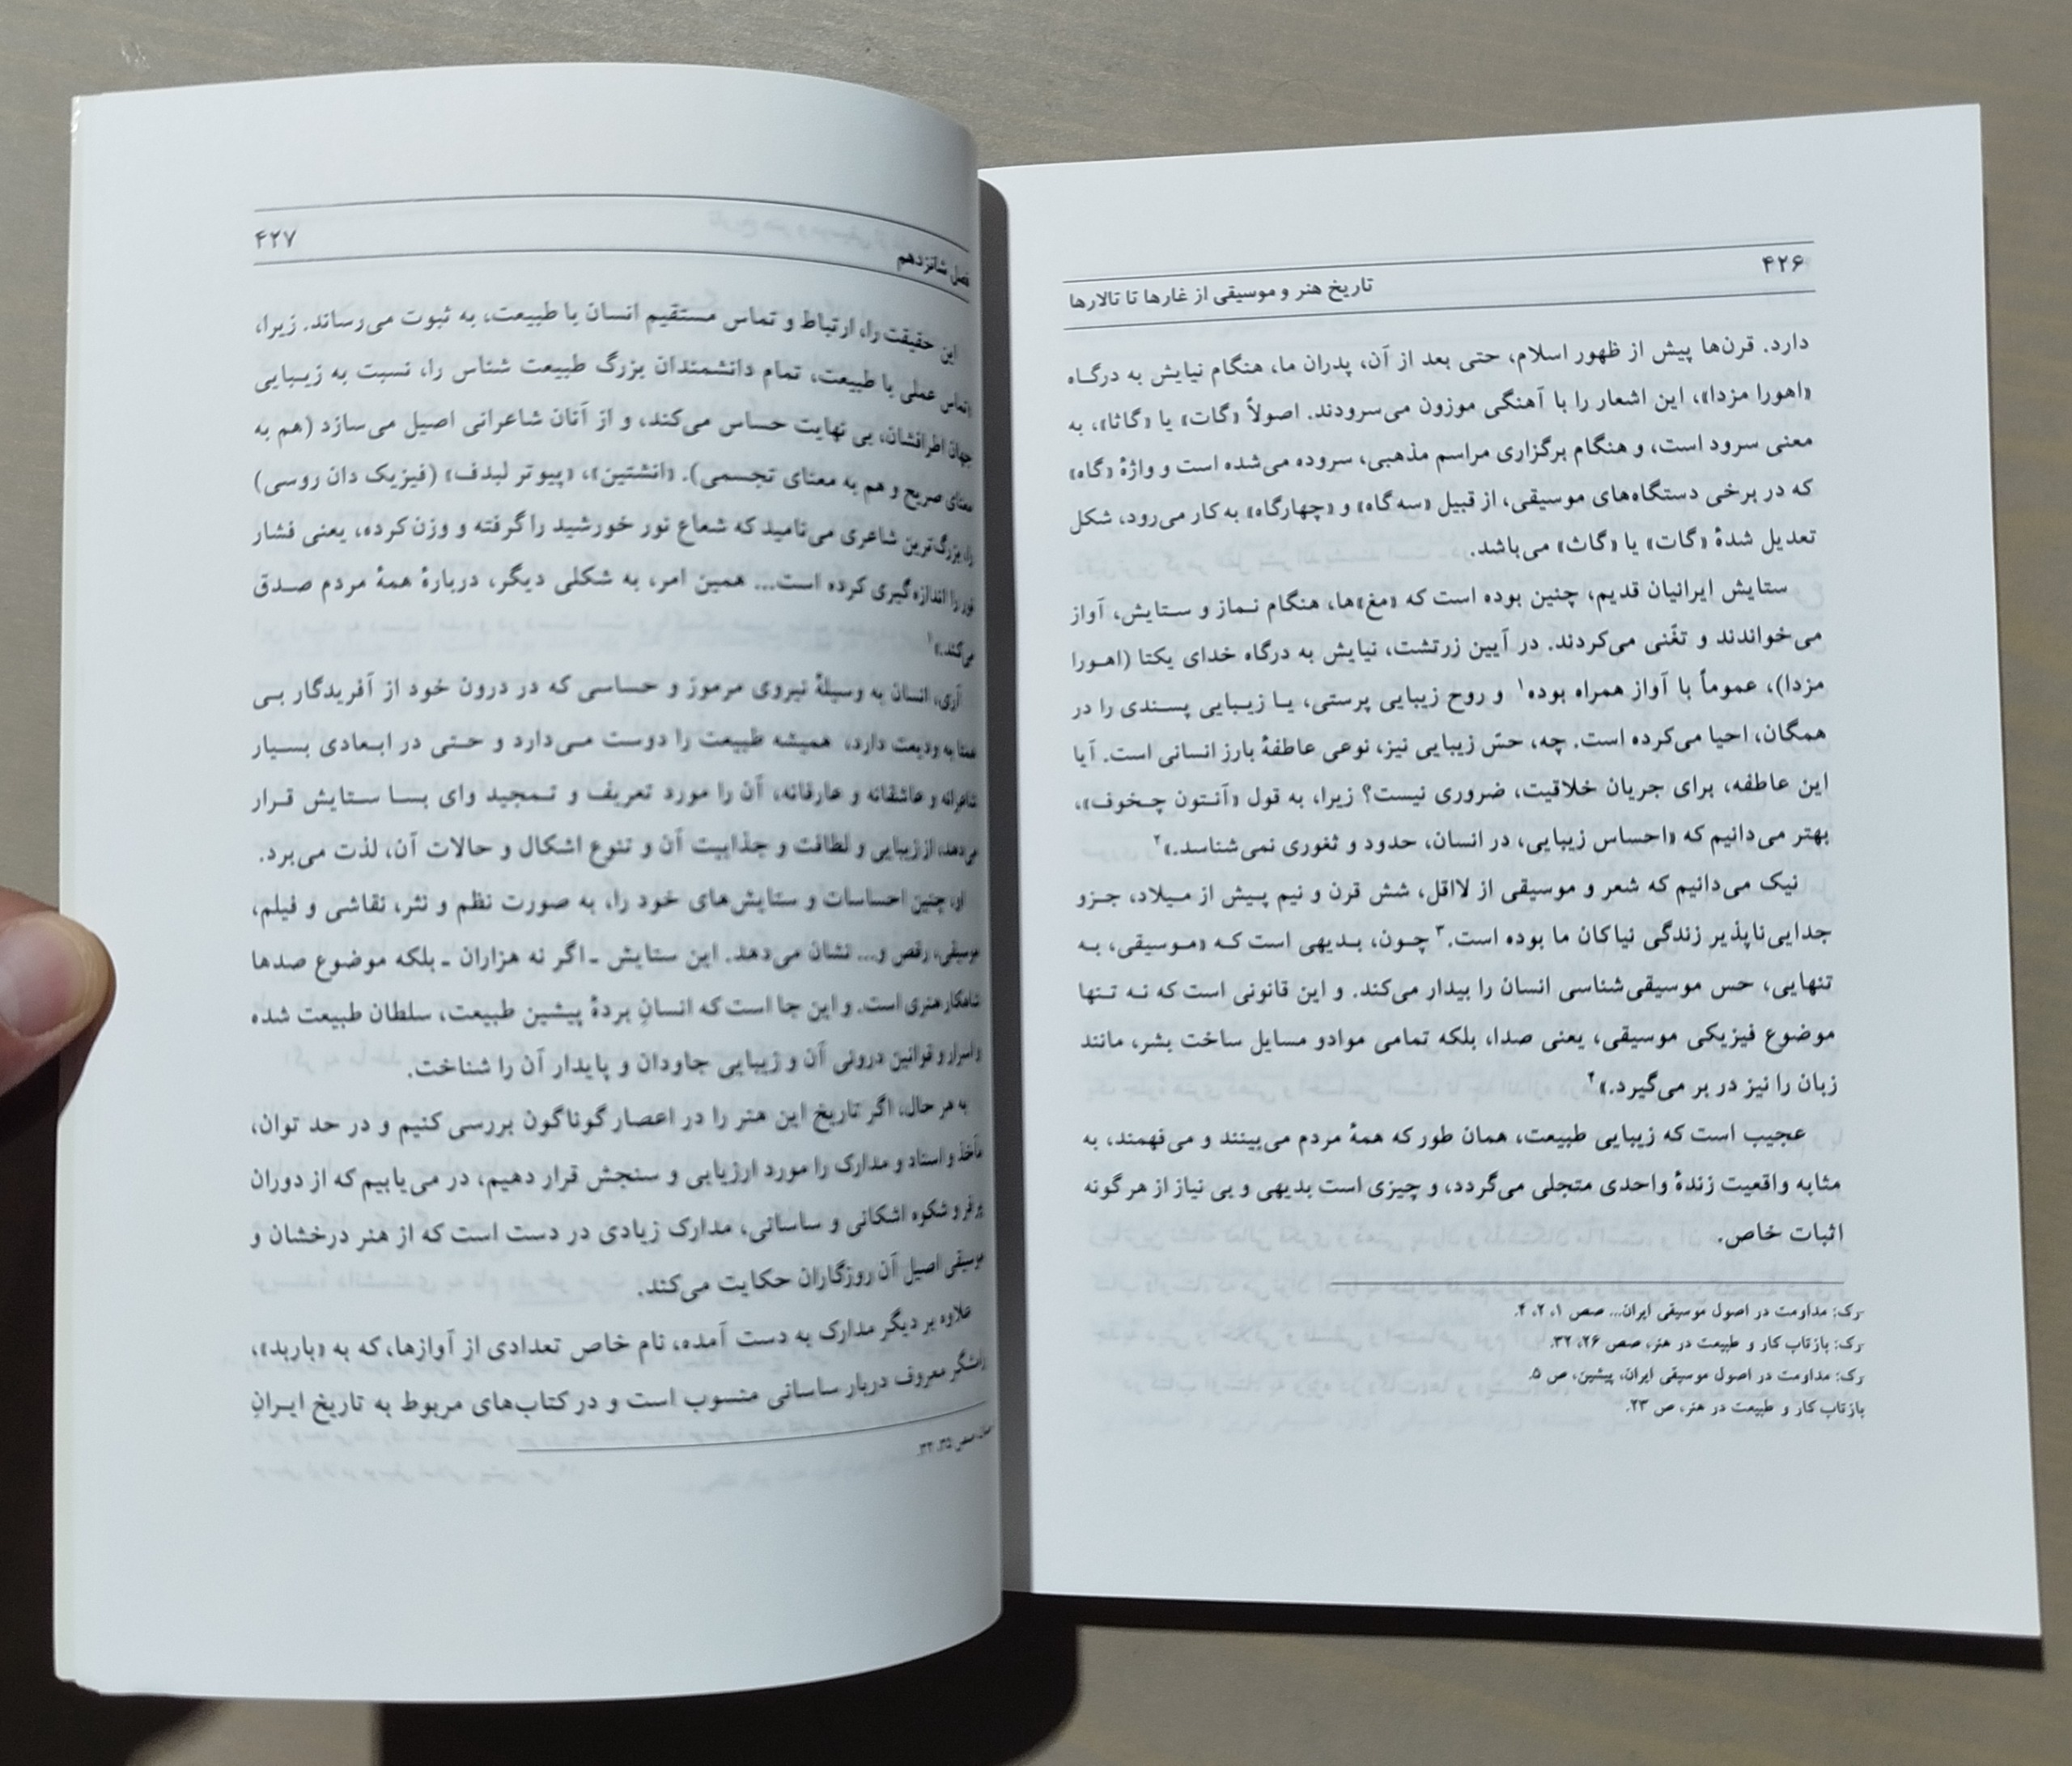 ۴۲۶
تاریخ هنر و موسیقی از غارها تا تالارها
دارد. قرن‌ها پیش از ظهور اسلام، حتی بعد از آن، پدران ما، هنگام نیایش به درگاه
«اهورا مزدا»، این اشعار را با آهنگی موزون می‌سرودند. اصولاً «گات» یا «گاثا»، به
معنی سرود است، و هنگام برگزاری مراسم مذهبی، سروده می‌شده است و واژهٔ «گاه»
که در برخی دستگاه‌های موسیقی، از قبیل «سه‌گاه» و «چهارگاه» به کار می‌رود، شکل
تعدیل شدهٔ «گات» یا «گاث» می‌باشد.
ستایش ایرانیان قدیم، چنین بوده است که «مغ»ها، هنگام نماز و ستایش، آواز
می‌خواندند و تغّنی می‌کردند. در آیین زرتشت، نیایش به درگاه خدای یکتا (اهورا
مزدا)، عموماً با آواز همراه بوده۱ و روح زیبایی پرستی، یا زیبایی پسندی را در
همگان، احیا می‌کرده است. چه، حسّ زیبایی نیز، نوعی عاطفهٔ بارز انسانی است. آیا
این عاطفه، برای جریان خلاقیت، ضروری نیست؟ زیرا، به قول «آنتون چخوف»،
بهتر می‌دانیم که «احساس زیبایی، در انسان، حدود و ثغوری نمی‌شناسد.»۲
نیک می‌دانیم که شعر و موسیقی از لااقل، شش قرن و نیم پیش از میلاد، جزو
جدایی‌ناپذیر زندگی نیاکان ما بوده است.۳ چون، بدیهی است که «موسیقی، به
تنهایی، حس موسیقی‌شناسی انسان را بیدار می‌کند. و این قانونی است که نه تنها
موضوع فیزیکی موسیقی، یعنی صدا، بلکه تمامی موادو مسایل ساخت بشر، مانند
زبان را نیز در بر می‌گیرد.»۴
عجیب است که زیبایی طبیعت، همان طور که همهٔ مردم می‌بینند و می‌فهمند، به
مثابه واقعیت زندهٔ واحدی متجلی می‌گردد، و چیزی است بدیهی و بی نیاز از هر گونه
اثبات خاص.
رک: مداومت در اصول موسیقی ایران... صص ۱، ۲، ۴.
رک: بازتاب کار و طبیعت در هنر، صص ۲۶، ۳۲.
رک: مداومت در اصول موسیقی ایران، پیشین، ص ۵.
بازتاب کار و طبیعت در هنر، ص ۲۳.
۴۲۷
فصل شانزدهم
این حقیقت را، ارتباط و تماس مستقیم انسان با طبیعت، به ثبوت می‌رساند. زیرا،
تماس عملی با طبیعت، تمام دانشمندان بزرگ طبیعت شناس را، نسبت به زیبایی
جهان اطرافشان، بی نهایت حساس می‌کند، و از آنان شاعرانی اصیل می‌سازد (هم به
معنای صریح و هم به معنای تجسمی). «انشتین»، «پیوتر لبدف» (فیزیک دان روسی)
را، بزرگ‌ترین شاعری می‌نامید که شعاع نور خورشید را گرفته و وزن کرده، یعنی فشار
نور را اندازه‌گیری کرده است... همین امر، به شکلی دیگر، دربارهٔ همهٔ مردم صدق
می‌کند.»۱
آری، انسان به وسیلهٔ نیروی مرموز و حساسی که در درون خود از آفریدگار بی
همتا به ودیعت دارد، همیشه طبیعت را دوست می‌دارد و حتی در ابعادی بسیار
شاعرانه و عاشقانه و عارفانه، آن را مورد تعریف و تمجید وای بسا ستایش قرار
می‌دهد، از زیبایی و لطافت و جذابیت آن و تنوع اشکال و حالات آن، لذت می‌برد.
او، چنین احساسات و ستایش‌های خود را، به صورت نظم و نثر، نقاشی و فیلم،
موسیقی، رقص و... نشان می‌دهد. این ستایش ـ اگر نه هزاران ـ بلکه موضوع صدها
شاهکار هنری است. و این جا است که انسانِ بردهٔ پیشین طبیعت، سلطان طبیعت شده
و اسرار و قوانین درونی آن و زیبایی جاودان و پایدار آن را شناخت.
به هر حال، اگر تاریخ این هنر را در اعصار گوناگون بررسی کنیم و در حد توان،
مآخذ و اسناد و مدارک را مورد ارزیابی و سنجش قرار دهیم، در می‌یابیم که از دوران
پرفر و شکوه اشکانی و ساسانی، مدارک زیادی در دست است که از هنر درخشان و
موسیقی اصیل آن روزگاران حکایت می‌کند.
علاوه بر دیگر مدارک به دست آمده، نام خاص تعدادی از آوازها، که به «باربد»،
رامشگر معروف دربار ساسانی منسوب است و در کتاب‌های مربوط به تاریخ ایرانِ
همان، صص ۳۵، ۳۳.